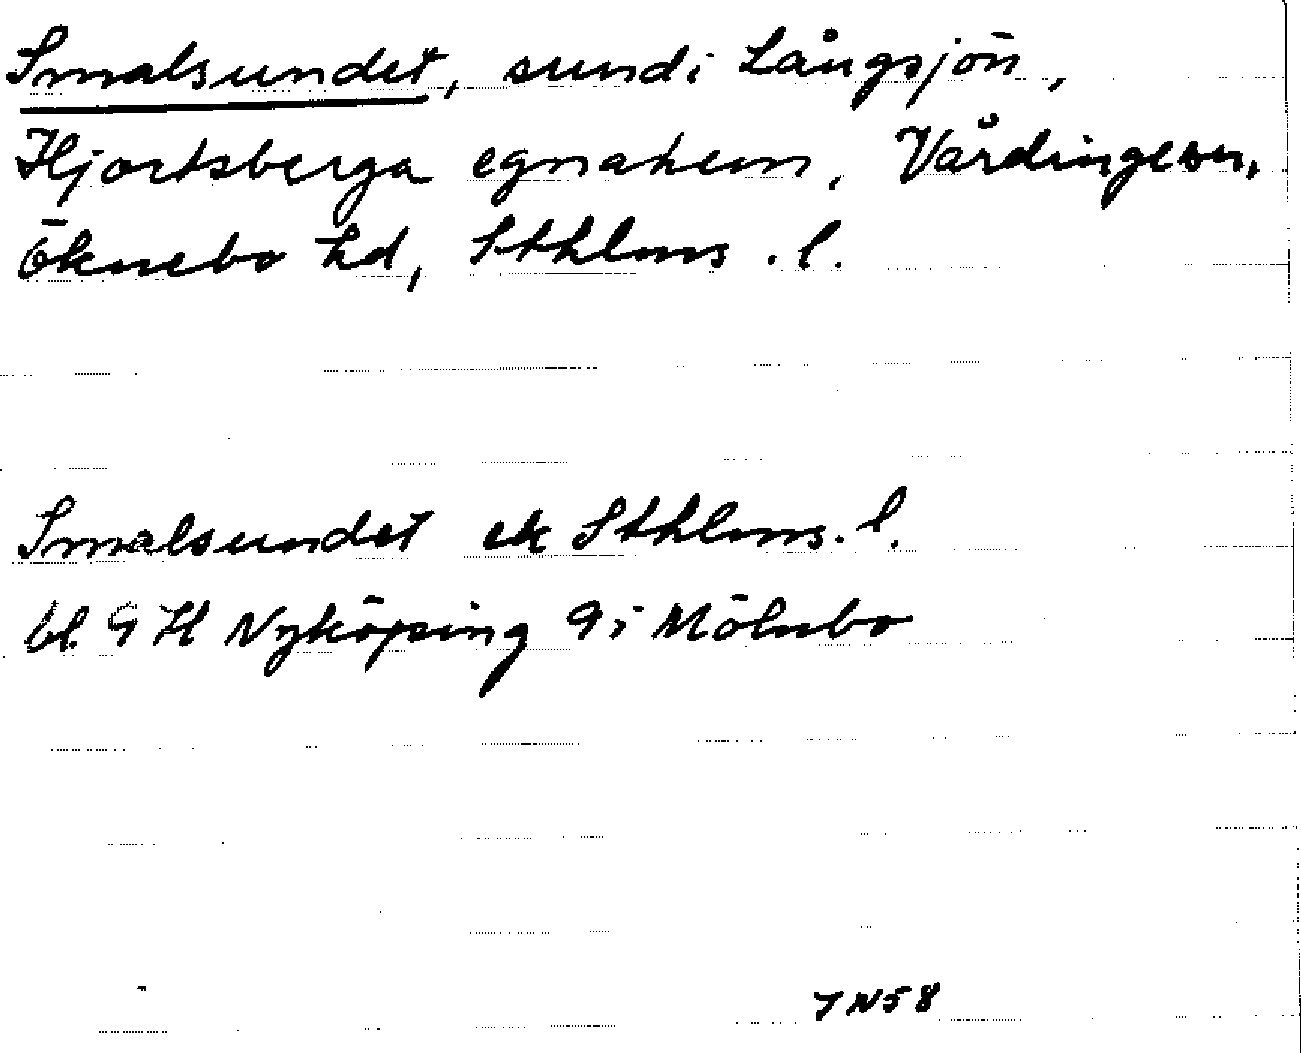 Smalsundet, sund i Långsjön,
Hjortsberga egnahem, Vårdinge sn,
Öknebo hd, Sthlms. l.
Smalsundet ek Sthlms. l.
bl. 9 H Nyköping 9 i Mölnbo
7 N 58